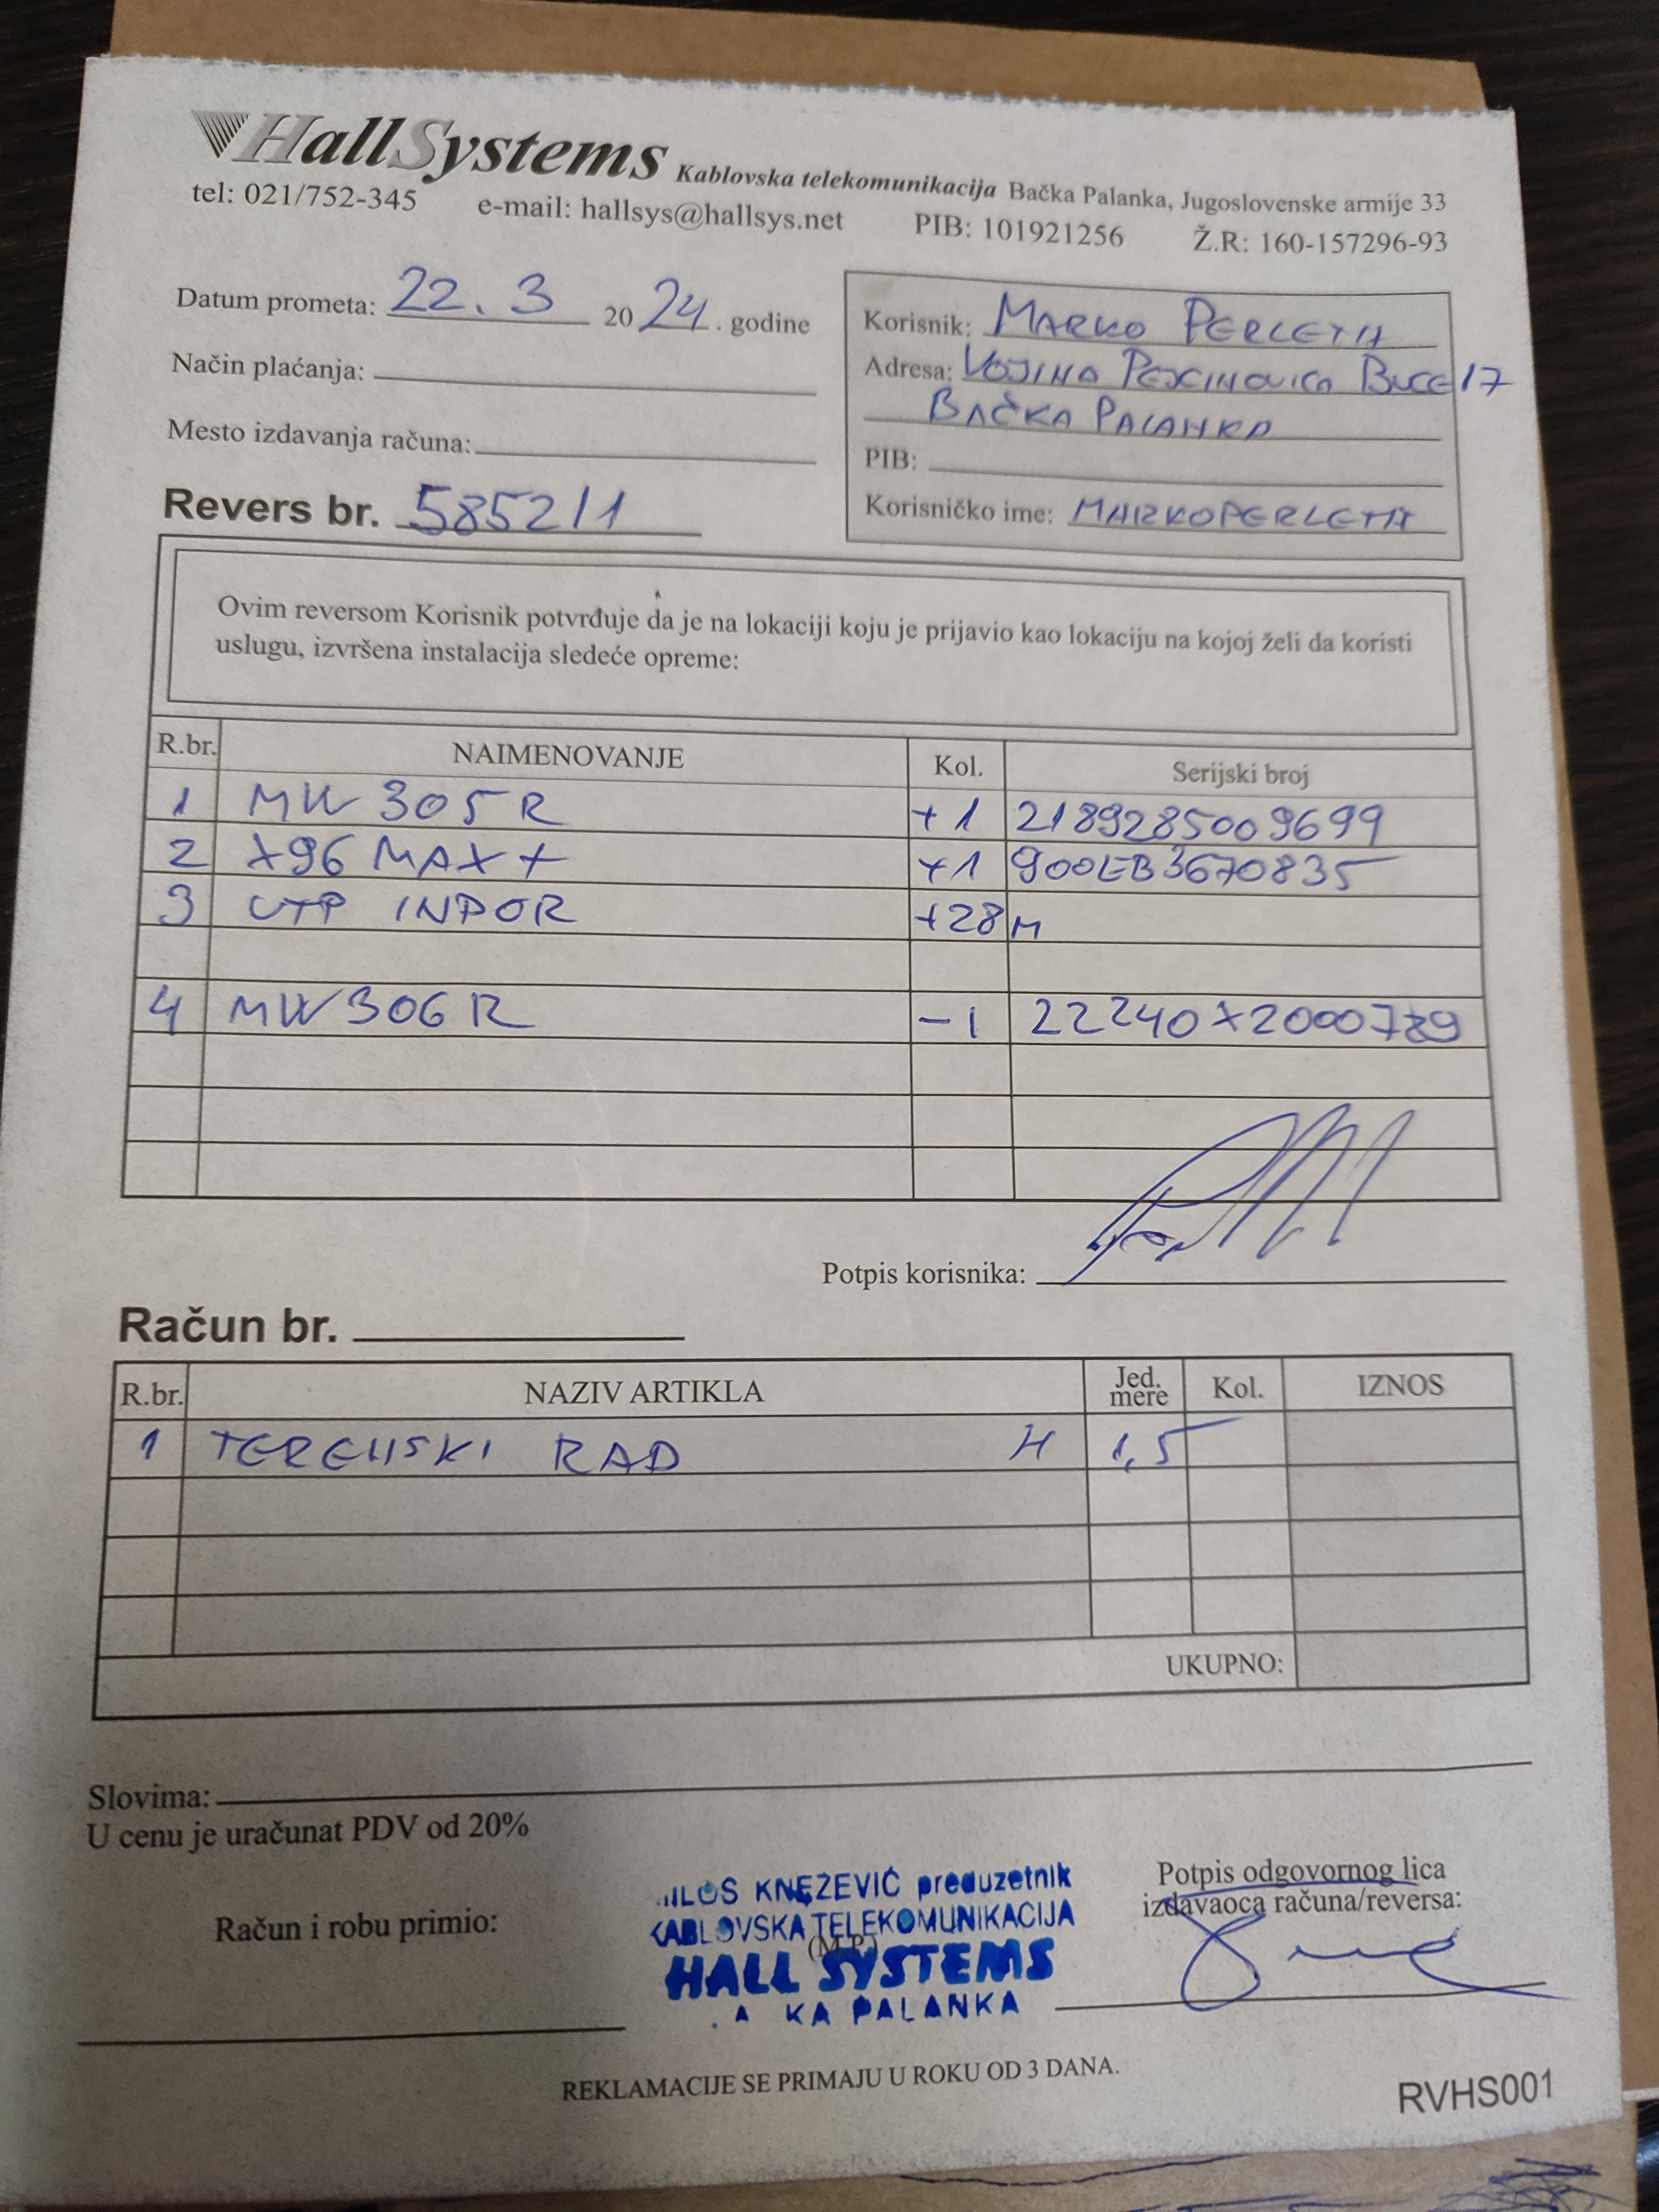 HallSystems Kablovska telekomunikacija Bačka Palanka, Jugoslovenske armije 33
tel: 021/752-345 e-mail: hallsys@hallsys.net PIB: 101921256 Ž.R: 160-157296-93
Datum prometa: 22. 3 2024. godine
Način plaćanja:
Mesto izdavanja računa:
Revers br. 5852/1
Korisnik: MARKO PERLETA
Adresa: VOJINA PEJCINOVICA BUCE 17
BAČKA PALANKA
PIB:
Korisničko ime: MARKOPERLETA
Ovim reversom Korisnik potvrđuje da je na lokaciji koju je prijavio kao lokaciju na kojoj želi da koristi
uslugu, izvršena instalacija sledeće opreme:
R.br. NAIMENOVANJE Kol. Serijski broj
1 MW 305 R +1 2189285009699
2 X96 MAX + +1 900EB3670835
3 UTP INDOR +28 M
4 MW 306 R -1 22240X2000789
Potpis korisnika:
Račun br.
R.br. NAZIV ARTIKLA Jed. mere Kol. IZNOS
1 TERENSKI RAD H 1,5
UKUPNO:
Slovima:
U cenu je uračunat PDV od 20%
Račun i robu primio:
ILOS KNEZEVIĆ preduzetnik
KABLOVSKA TELEKOMUNIKACIJA
(M.P.)
HALL SYSTEMS
A KA PALANKA
Potpis odgovornog lica
izdavaoca računa/reversa:
REKLAMACIJE SE PRIMAJU U ROKU OD 3 DANA.
RVHS001